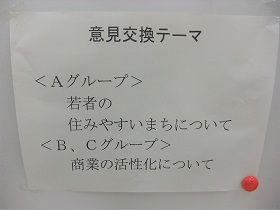 意見交換テーマ
＜Aグループ＞
若者の
住みやすいまちについて
＜B、Cグループ＞
商業の活性化について